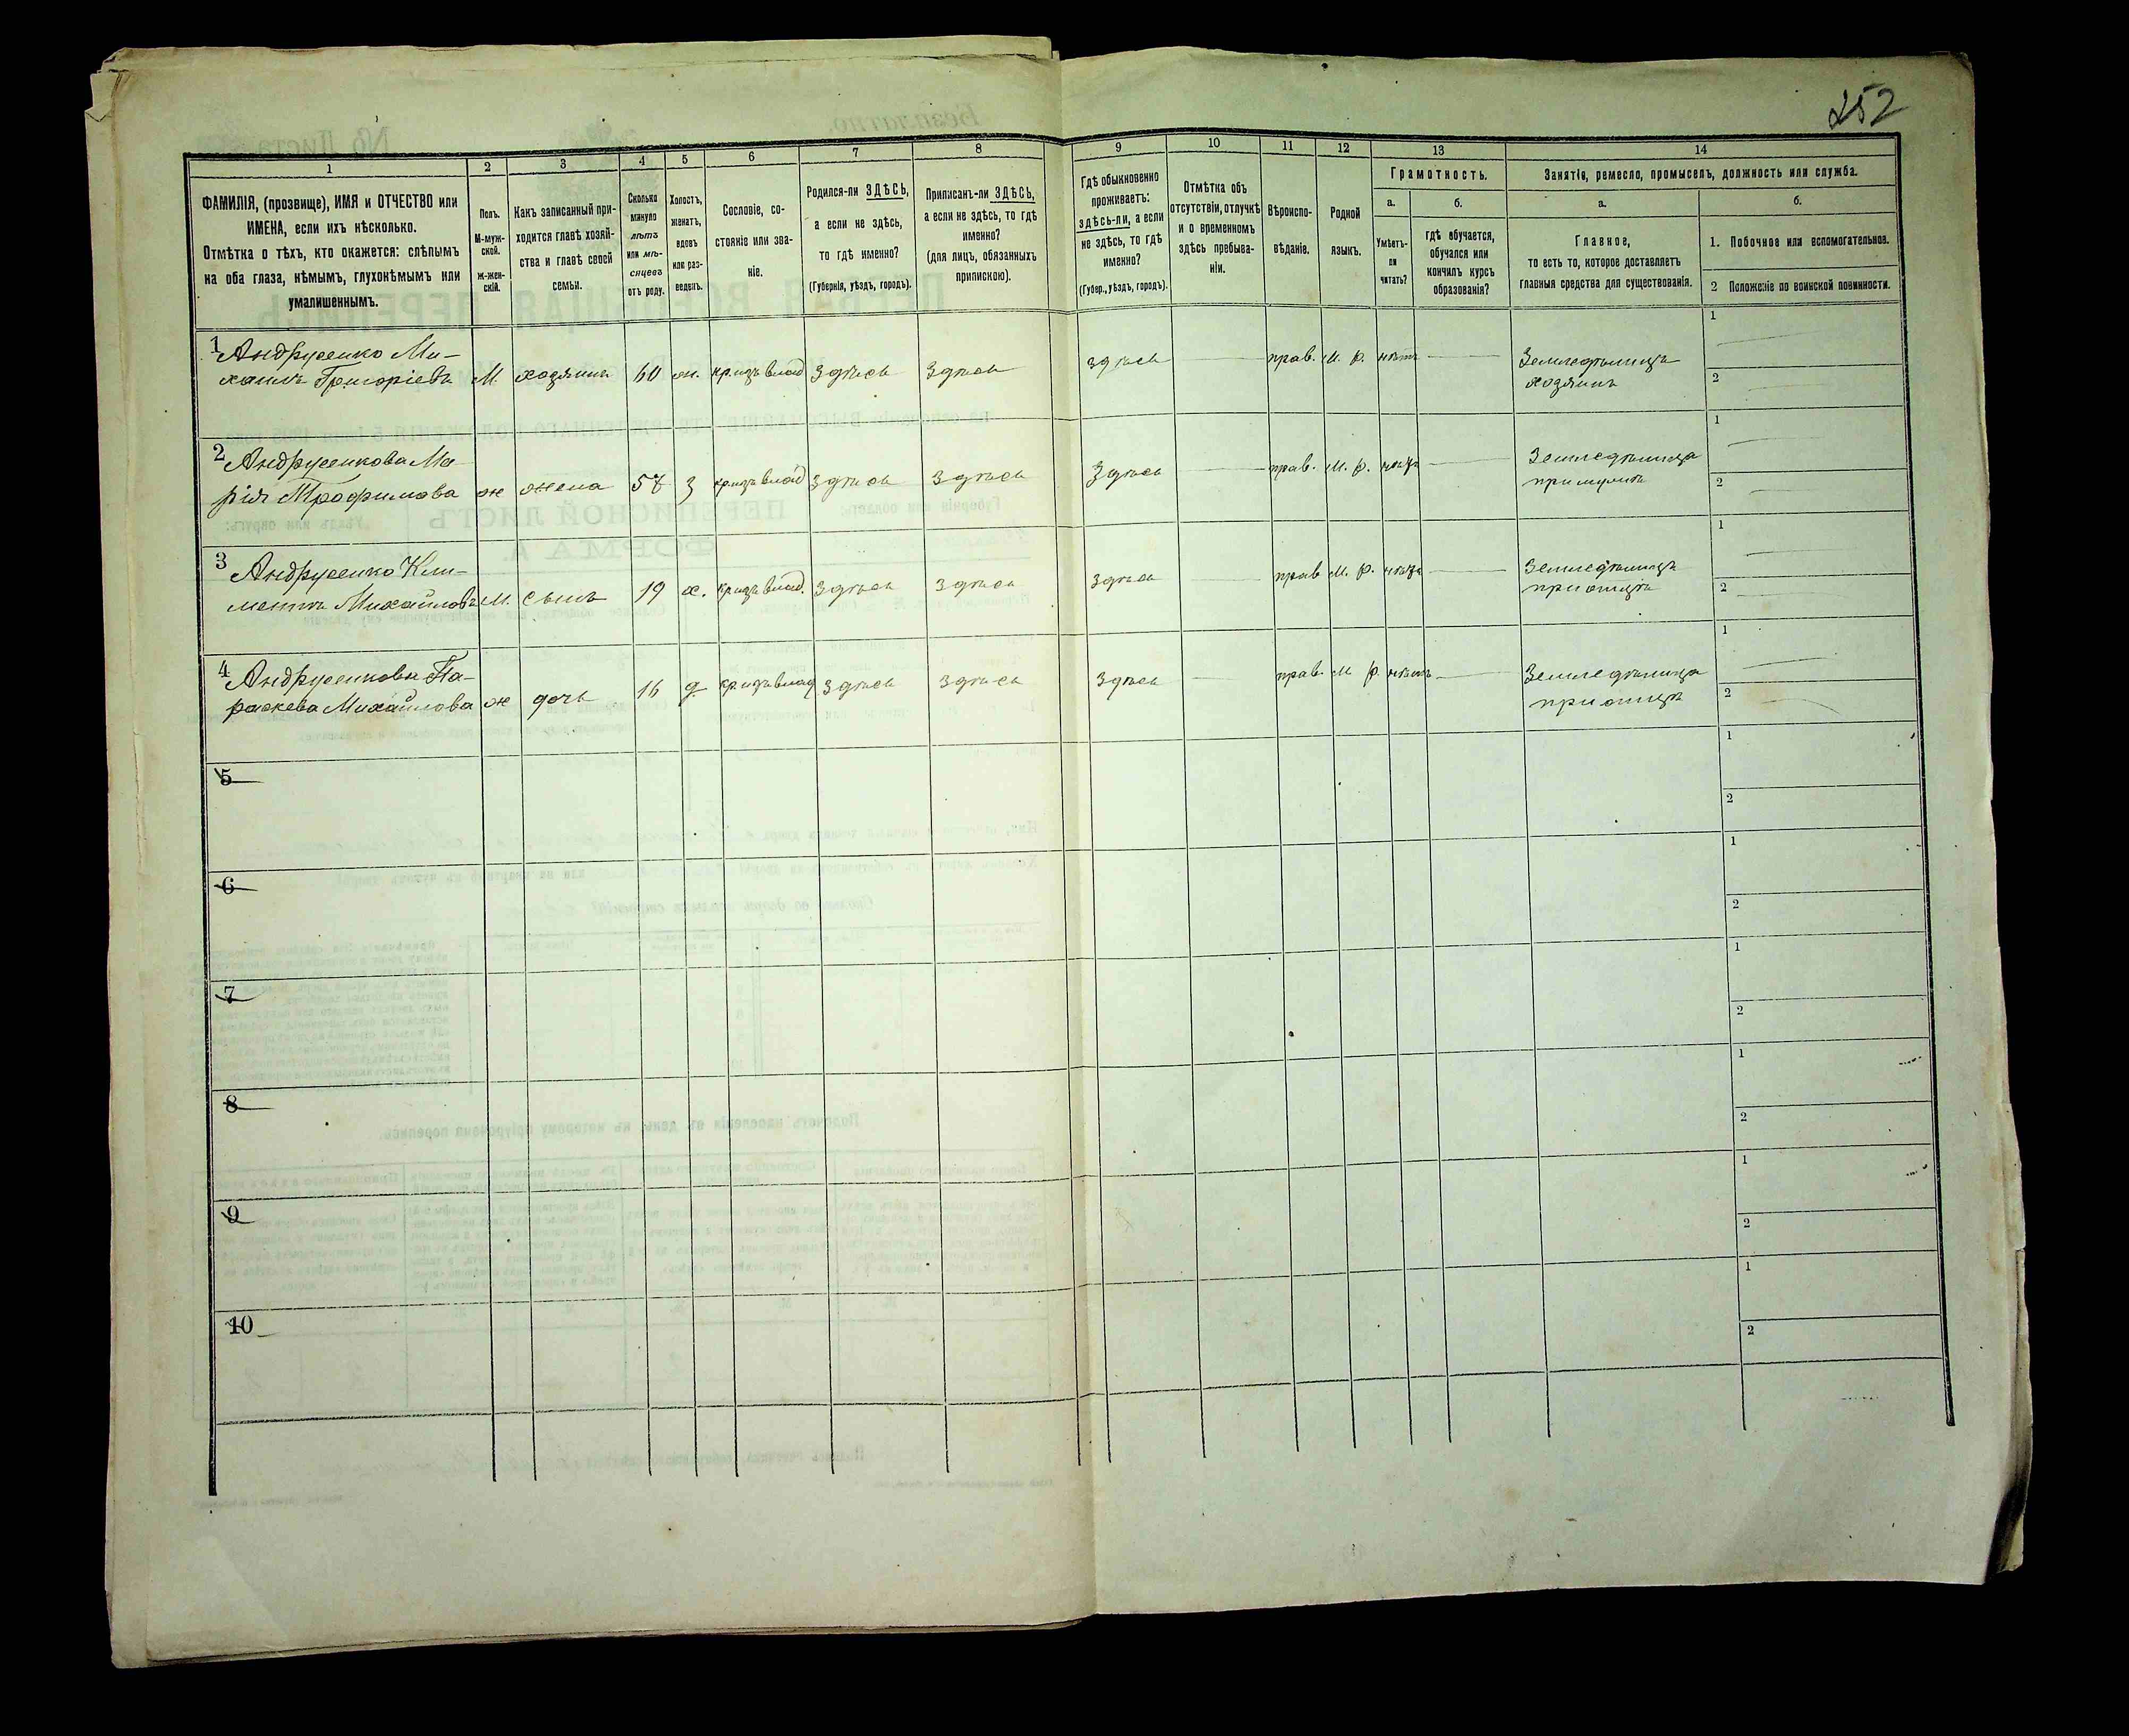 252
1
2
3
4
5
6
7
8
9
10
11
12
13
14
ФАМИЛІЯ, (прозвище), ИМЯ и ОТЧЕСТВО или
ИМЕНА, если ихъ нѣсколько.
Отмѣтка о тѣхъ, кто окажется: слѣпымъ
на оба глаза, нѣмымъ, глухонѣмымъ или
умалишеннымъ.
Полъ.
М-муж-
ской.
ж-жен-
скій.
Какъ записанный при-
ходится главѣ хозяй-
ства и главѣ своей
семьи.
Сколько
минуло
лѣтъ
или мѣ-
сяцевъ
отъ роду.
Холостъ,
женатъ,
вдовъ
или раз-
веденъ.
Сословіе, со-
стояніе или зва-
ніе.
Родился-ли ЗДѢСЬ,
а если не здѣсь,
то гдѣ именно?
(Губернія, уѣздъ, городъ).
Приписанъ-ли ЗДѢСЬ,
а если не здѣсь, то гдѣ
именно?
(для лицъ, обязанныхъ
припискою).
Гдѣ обыкновенно
проживаетъ:
здѣсь-ли, а если
не здѣсь, то гдѣ
именно?
(Губер., уѣздъ, городъ).
Отмѣтка объ
отсутствіи, отлучкѣ
и о временномъ
здѣсь пребыва-
ніи.
Вѣроиспо-
вѣданіе.
Родной
языкъ.
Грамотность.
а.
Умѣетъ-
ли
читать?
б.
гдѣ обучается,
обучался или
кончилъ курсъ
образованія?
Занятіе, ремесло, промыселъ, должность или служба.
а.
Главное,
то есть то, которое доставляетъ
главныя средства для существованія.
б.
1. Побочное или вспомогательное.
2 Положеніе по воинской повинности.
1 Андрусенко Ми-
хаилъ Григоріевъ М. хозяинъ 60 ж. кр. изъ влад здѣсь здѣсь здѣсь прав. М. р. нѣтъ Земледѣлецъ
хозяинъ
1
2
2 Андрусенкова Ма
рія Трофимова ж жена 58 з кр. изъ влад здѣсь здѣсь здѣсь прав. М. р. нѣтъ Земледѣлица
при мужѣ
1
2
3 Андрусенко Кли-
ментъ Михайловъ М. сынъ 19 х. кр. изъ влад. здѣсь здѣсь здѣсь прав М. р. нѣтъ Земледѣлецъ
при отцѣ
1
2
4 Андрусенкова Па-
раскева Михайлова ж дочь 16 д. кр. изъ влад здѣсь здѣсь здѣсь прав. М р. нѣтъ Земледѣлица
при отцѣ
1
2
5
1
2
6
1
2
7
1
2
8
1
2
9
1
2
10
1
2